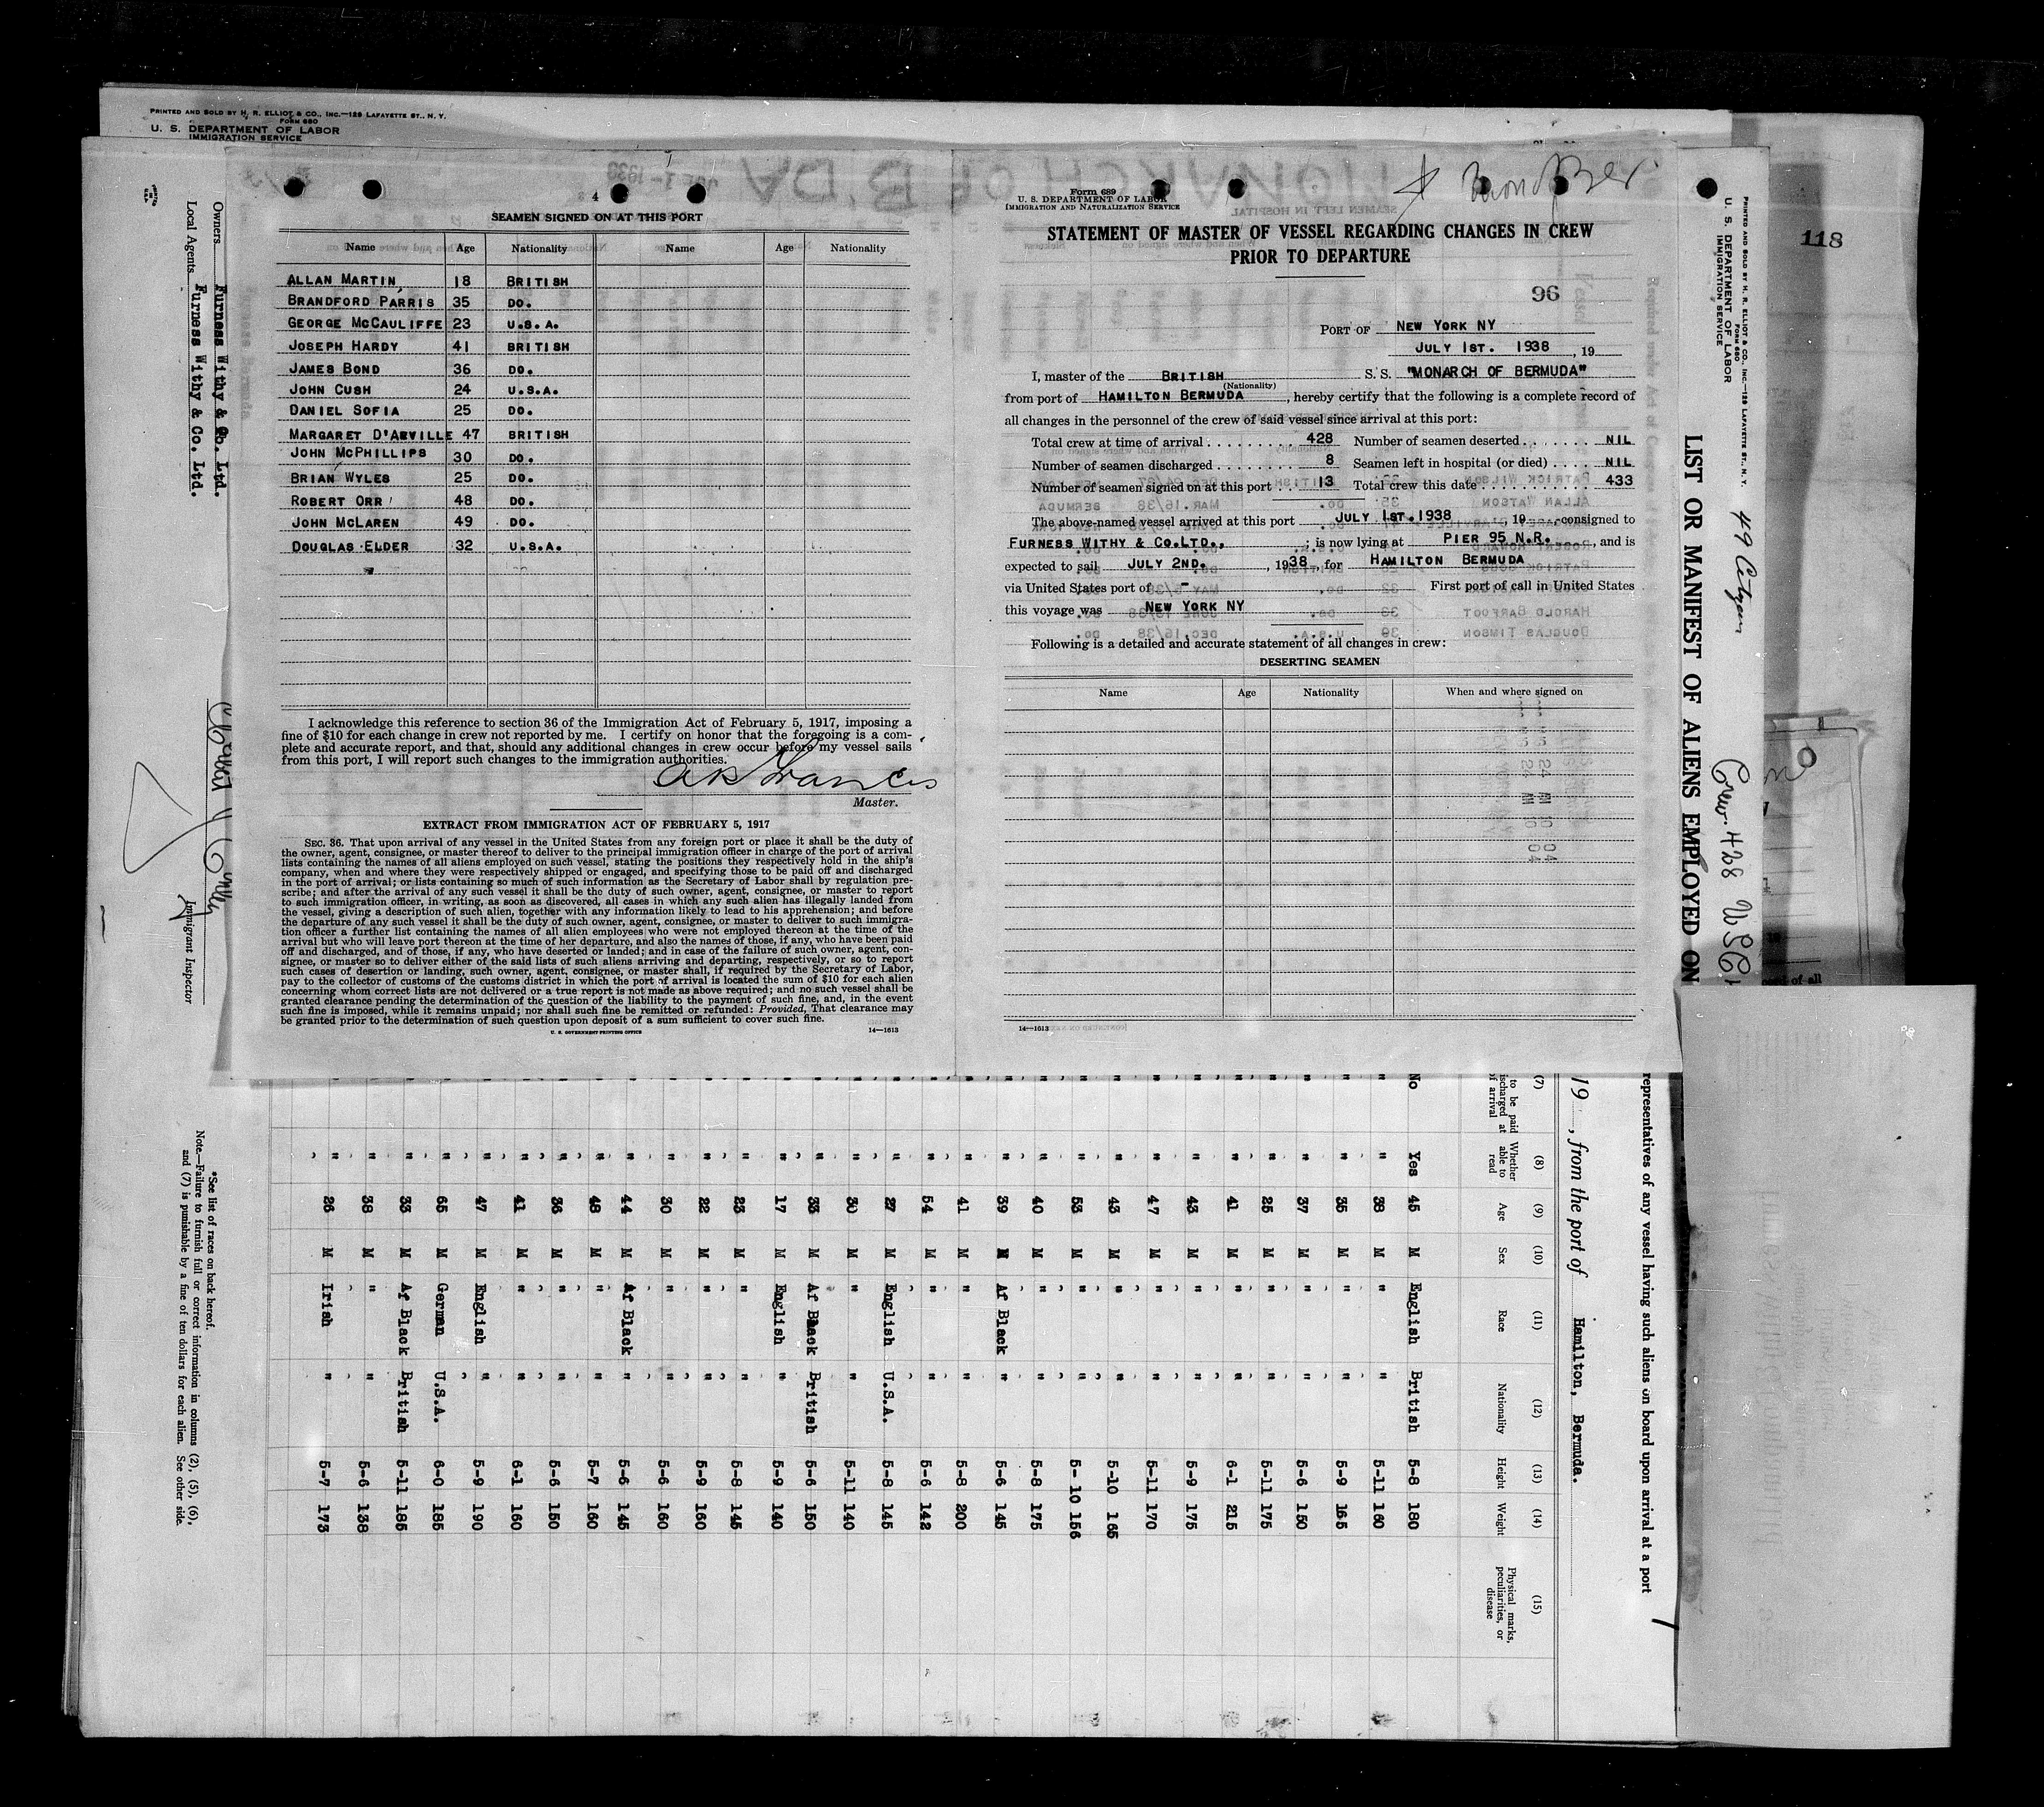 PRINTED AND SOLD BY H. R. ELLIOT & CO., INC.—129 LAFAYETTE ST., N. Y.
FORM 680
U. S. DEPARTMENT OF LABOR
IMMIGRATION SERVICE
Owners Furness Withy & Co. Ltd.
Local Agents Furness Withy & Co. Ltd.
Immigrant Inspector
4
SEAMEN SIGNED ON AT THIS PORT
Name Age Nationality Name Age Nationality
ALLAN MARTIN, 18 BRITISH
BRANDFORD PARRIS 35 DO.
GEORGE MCCAULIFFE 23 U.S.A.
JOSEPH HARDY 41 BRITISH
JAMES BOND 36 DO.
JOHN CUSH 24 U.S.A.
DANIEL SOFIA 25 DO.
MARGARET D'ARVILLE 47 BRITISH
JOHN MCPHILLIPS 30 DO.
BRIAN WYLES 25 DO.
ROBERT ORR 48 DO.
JOHN MCLAREN 49 DO.
DOUGLAS ELDER 32 U.S.A.
I acknowledge this reference to section 36 of the Immigration Act of February 5, 1917, imposing a
fine of $10 for each change in crew not reported by me. I certify on honor that the foregoing is a com-
plete and accurate report, and that, should any additional changes in crew occur before my vessel sails
from this port, I will report such changes to the immigration authorities.
Master.
EXTRACT FROM IMMIGRATION ACT OF FEBRUARY 5, 1917
SEC. 36. That upon arrival of any vessel in the United States from any foreign port or place it shall be the duty of
the owner, agent, consignee, or master thereof to deliver to the principal immigration officer in charge of the port of arrival
lists containing the names of all aliens employed on such vessel, stating the positions they respectively hold in the ship's
company, when and where they were respectively shipped or engaged, and specifying those to be paid off and discharged
in the port of arrival; or lists containing so much of such information as the Secretary of Labor shall by regulation pre-
scribe; and after the arrival of any such vessel it shall be the duty of such owner, agent, consignee, or master to report
to such immigration officer, in writing, as soon as discovered, all cases in which any such alien has illegally landed from
the vessel, giving a description of such alien, together with any information likely to lead to his apprehension; and before
the departure of any such vessel it shall be the duty of such owner, agent, consignee, or master to deliver to such immigra-
tion officer a further list containing the names of all alien employees who were not employed thereon at the time of the
arrival but who will leave port thereon at the time of her departure, and also the names of those, if any, who have been paid
off and discharged, and of those, if any, who have deserted or landed; and in case of the failure of such owner, agent, con-
signee, or master so to deliver either of the said lists of such aliens arriving and departing, respectively, or so to report
such cases of desertion or landing, such owner, agent, consignee, or master shall, if required by the Secretary of Labor,
pay to the collector of customs of the customs district in which the port of arrival is located the sum of $10 for each alien
concerning whom correct lists are not delivered or a true report is not made as above required; and no such vessel shall be
granted clearance pending the determination of the question of the liability to the payment of such fine, and, in the event
such fine is imposed, while it remains unpaid; nor shall such fine be remitted or refunded: Provided, That clearance may
be granted prior to the determination of such question upon deposit of a sum sufficient to cover such fine.
U. S. GOVERNMENT PRINTING OFFICE 14—1613
Form 689
U. S. DEPARTMENT OF LABOR
IMMIGRATION AND NATURALIZATION SERVICE
STATEMENT OF MASTER OF VESSEL REGARDING CHANGES IN CREW
PRIOR TO DEPARTURE
96
PORT OF NEW YORK NY
JULY 1ST. 1938, 19
I, master of the BRITISH S. S. "MONARCH OF BERMUDA"
(Nationality)
from port of HAMILTON BERMUDA, hereby certify that the following is a complete record of
all changes in the personnel of the crew of said vessel since arrival at this port:
Total crew at time of arrival 428 Number of seamen deserted NIL
Number of seamen discharged 8 Seamen left in hospital (or died) NIL
Number of seamen signed on at this port 13 Total crew this date 433
The above-named vessel arrived at this port JULY 1ST.1938, 19, consigned to
FURNESS WITHY & CO.LTD., ; is now lying at PIER 95 N.R., and is
expected to sail JULY 2ND., 1938, for HAMILTON BERMUDA
via United States port of - First port of call in United States
this voyage was NEW YORK NY
Following is a detailed and accurate statement of all changes in crew:
DESERTING SEAMEN
Name Age Nationality When and where signed on
14—1613
118
PRINTED AND SOLD BY H. R. ELLIOT & CO., INC.—129 LAFAYETTE ST., N. Y.
FORM 680
U. S. DEPARTMENT OF LABOR
IMMIGRATION SERVICE
Crew 428
LIST OR MANIFEST OF ALIENS EMPLOYED ON
representatives of any vessel having such aliens on board upon arrival at a port
19 , from the port of Hamilton, Bermuda.
(7) (8) (9) (10) (11) (12) (13) (14) (15)
to be paid
discharged at
of arrival
Whether able to read
Age Sex Race Nationality Height Weight
Physical marks, peculiarities, or disease
No Yes 45 M English British 5-8 180
" " 38 M " " 5-11 160
" " 35 M " " 5-9 165
" " 37 M " " 5-6 150
" " 25 M " " 5-11 175
" " 41 M " " 6-1 215
" " 43 M " " 5-9 175
" " 47 M " " 5-11 170
" " 43 M " " 5-10 165
" " 53 M " " 5-10 156
" " 40 M " " 5-8 175
" " 39 M Af Black " 5-6 145
" " 41 M " " 5-8 200
" " 54 M " " 5-6 142
" " 27 M English U.S.A. 5-8 145
" " 30 M " " 5-11 140
" " 33 M Af Black British 5-6 150
" " 17 M English " 5-9 140
" " 23 M " " 5-8 145
" " 22 M " " 5-9 160
" " 30 M " " 5-6 160
" " 44 M Af Black " 5-6 145
" " 48 M " " 5-7 160
" " 36 M " " 5-6 150
" " 41 M " " 6-1 160
" " 47 M English " 5-9 190
" " 65 M German U.S.A. 6-0 185
" " 33 M Af Black British 5-11 185
" " 38 M " " 5-6 138
" " 26 M Irish " 5-7 173
*See list of races on back hereof.
Note.—Failure to furnish full or correct information in columns (2), (5), (6),
and (7) is punishable by a fine of ten dollars for each alien. See other side.